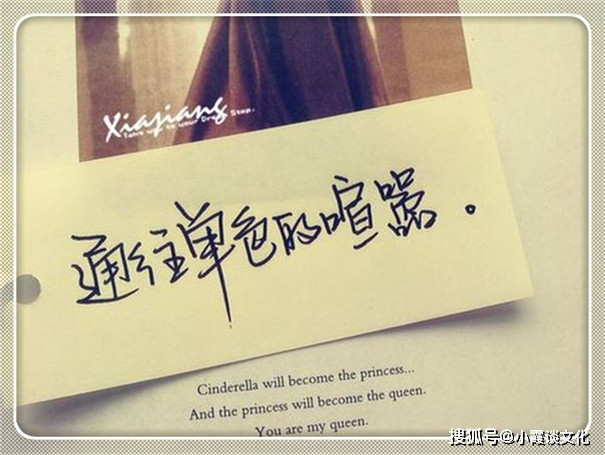 Xiajiang
Take me to your Dream Stop.
通往单色的喧嚣。
Cinderella will become the princess...
And the princess will become the queen.
You are my queen.
搜狐号@小霞谈文化